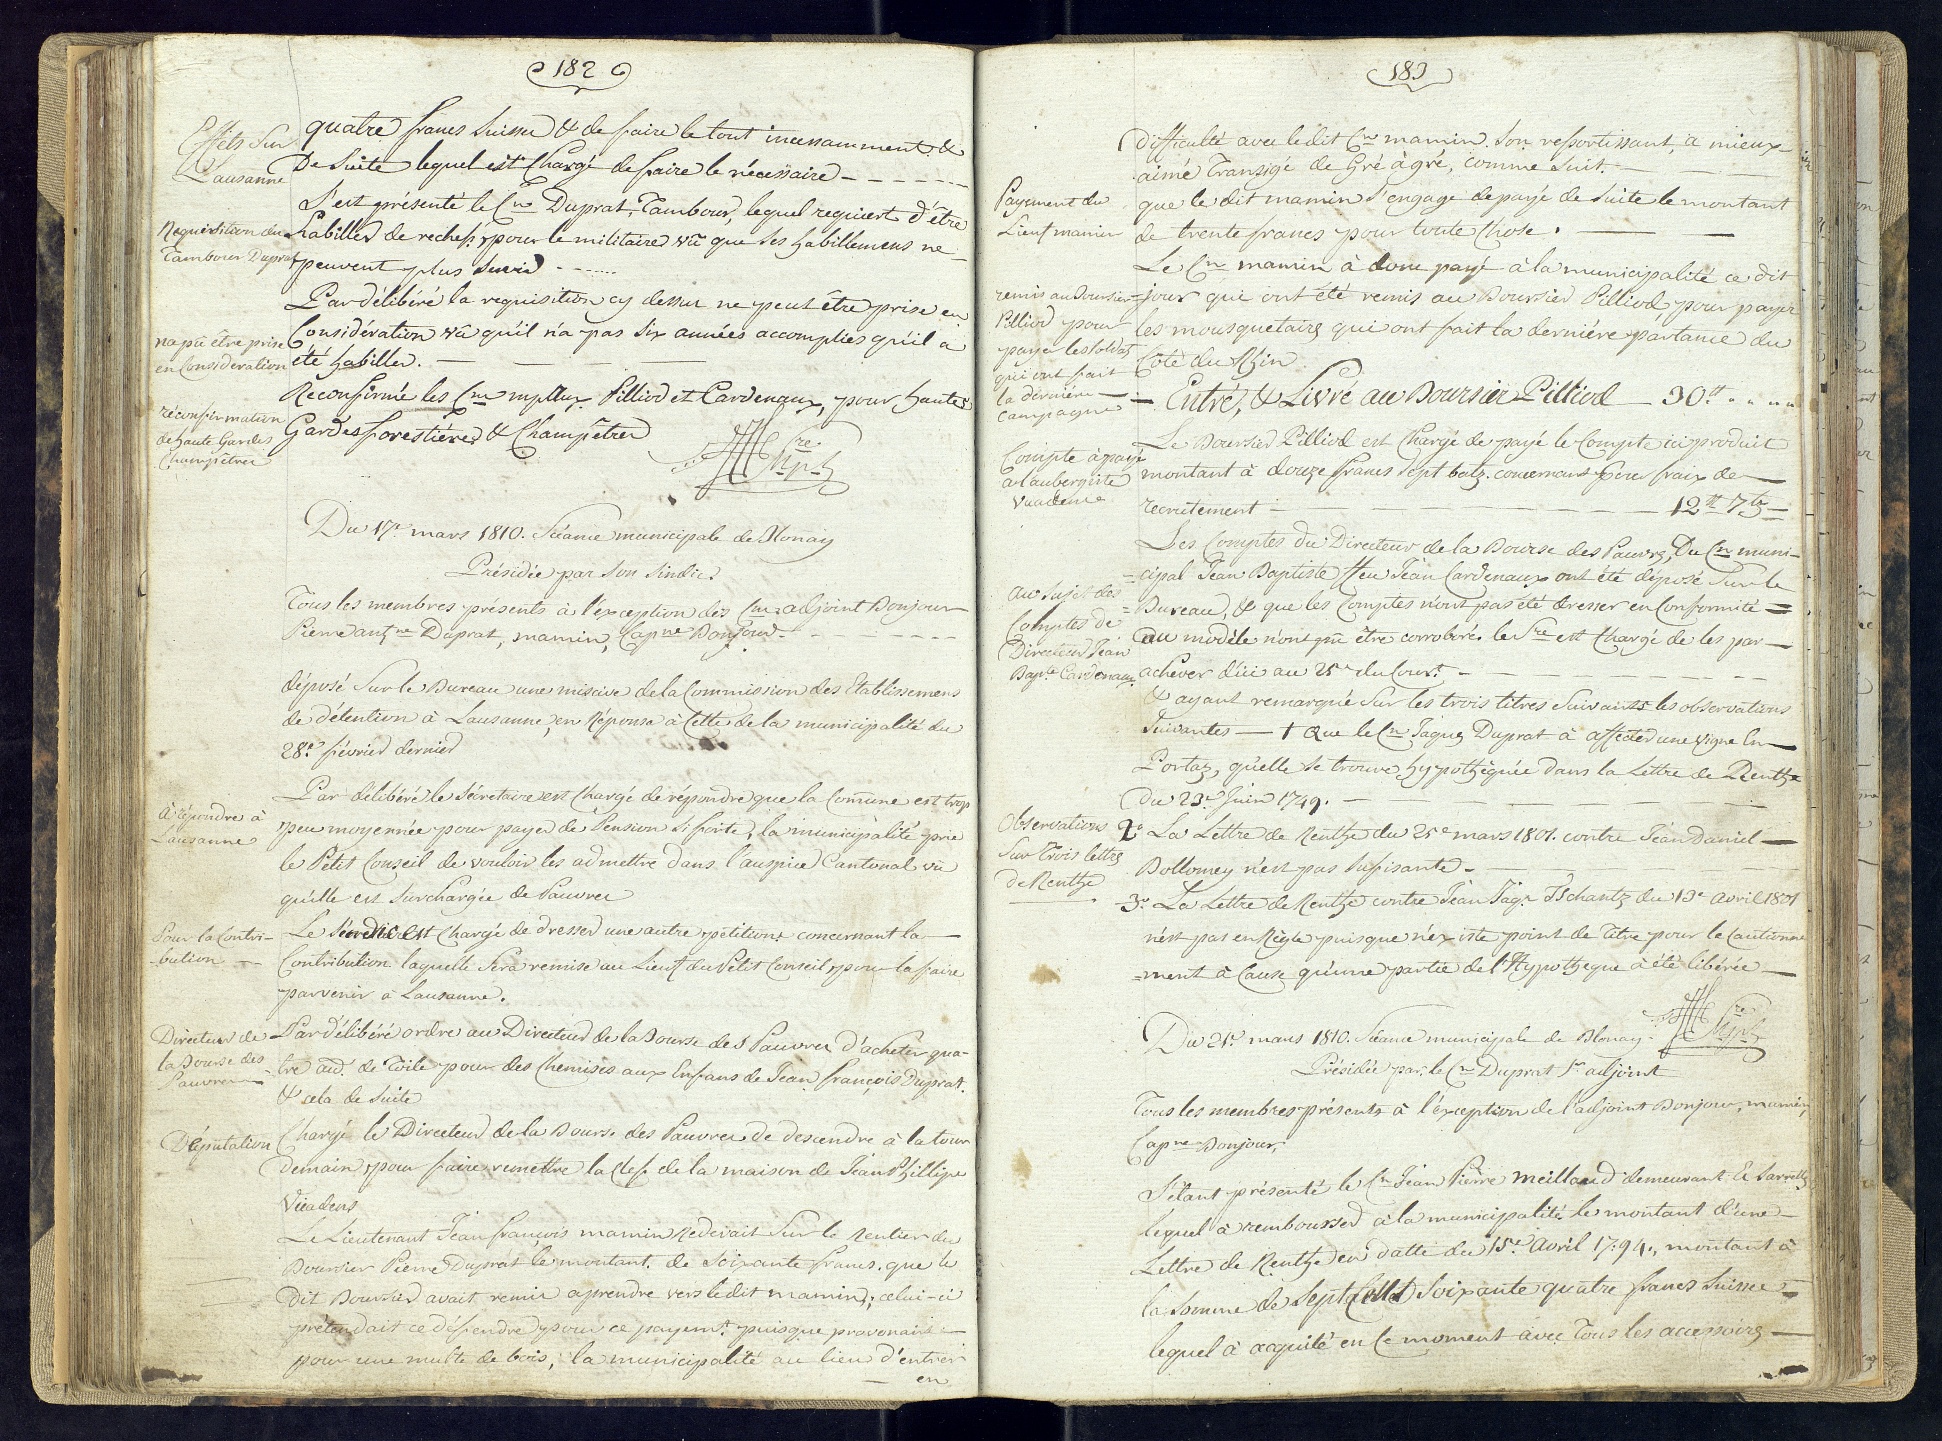 182
Effêts Sur
Lausanne
quatre francs Suisse & de faire le tout incessamment &
De Suite lequel est Chargé de faire le nécessaire
Requisition du
Tambour Duprat
S'est présenté le Cn Duprat, Tambour, lequel requiert d'être
habiller de rechef pour le militaire vû que ses habillemens ne
peuvent plus Servir
na pû être prise
en Considération
Par délibéré la requisition cy dessus ne peut être prise en
Considération vû qu'il n'a pas Six années accomplies qu'il a
été habiller.
réconfirmation
de haute Gardes
Champêtres
Reconfirmé les Cns Pilliod et Cardenaux, pour hautes
Gardes forestières & Champêtres
Du 17e mars 1810. Séance municipale de Blonay
Présidée par Son Sindic.
Tous les membres présents à l'exception des Cns adjoint Bonjour
Pierre Duprat, mamin, Capne Bonjour
déposé Sur le Bureau une missive de la Commission des Etablissemens
de détention à Lausanne, en Réponse à Cette de la municipalité du
28e février dernier
à répondre à
Lausanne
Par délibéré le Sécretaire est Chargé de répondre que la Comune est trop
peu moyennée pour payer de Pension Si forte, la municipalité prie
le Petit Conseil de vouloir les admettre dans l'auspice Cantonal vû
qu'elle est Surchargée de Pauvres
Pour la Contri-
bution
Le Sindic est Chargé de dresser une autre pétition concernant la
Contribution laquelle Sera remise au Lieut du Petit Conseil pour la faire
parvenir à Lausanne.
Directeur de
la Bourse des
Pauvres
Par délibéré ordre au Directeur de la Bourse des Pauvres d'acheter qua-
tre aud. de Toile pour des Chemises aux Enfans de Jean françois Duprat.
& cela de Suite
Députation
Chargé le Directeur de la Bourse des Pauvres de descendre à la tour
demain pour faire remettre la Clef de la maison de Jean Phillipe
Viladens
Le Lieutenant Jean françois mamin Redevait Sur le Rentier du
Boursier Pierre Duprat le montant de Soixante francs. que le
dit Boursier avait remis aprendre vers ledit mamin; celui-ci
prétendait ce défendre pour ce payemt. puisque provenait
pour une multe de bois, la municipalité au lieu d'entrer
en
183
difficulté avec ledit Cn mamin. Son ressortissant, à mieux
aimé Transigé de Gré à gré, comme Suit.
Payement du
Lieut mamin
que le dit mamin S'engage de payé de Suite le montant
de trente francs pour toute Chose.
remis au Boursier
Pilliod pour
payer les Soldats
qui ont fait
la dernière
campagne
Le Cn mamin à donc payé à la municipalité ce dit
jour qui ont été remis au Boursier Pilliod, pour payer
les mousquetaires qui ont fait la dernière partance du
Côté du Rhin
Entré, & Livré au Boursier Pilliod 30
Compte à payé
a l'aubergiste
Le Boursier Pilliod est Chargé de payé le Compte ici produit
montant à douze francs Sept batz concernant pour fraix de
recrutement 12 7
au Sujet des
Comptes de
Directeur Jean
Bapte Cardenaux
Les Comptes du Directeur de la Bourse des Pauvres, Du Cn muni-
cipal Jean Baptiste ffeu Jean Cardenaux ont été déposé Sur le
Bureau, & que les Comptes n'ont pas été dresser en Conformité
au modèle n'ont pû être corroboré. le Sre est Chargé de les par-
achever d'ici au 25e du Court.
& ayant remarqué Sur les trois titres Suivants les observations
Suivantes 1 Que le Cn Jaques Duprat à affecter une vigne En
Portaz, quelle Se trouve hypothéquée dans la Lettre de Renthe
du 23e Juin 1749.
Observations
Sur Trois lettres
De Renthe
2o La Lettre de Renthe du 25e mars 1801. contre Jean Daniel
Dollomey n'est pas Sufisante
3o La Lettre de Renthe contre Jean Jaqs Tschantz du 13e avril 1801
n'est pas en Règle puisque n'existe point de Titre pour le Cautionne
ment à Cause qu'une partie de l'Hypotheque à été libérée
Du 21e mars 1810. Séance municipale de Blonay
Présidée par le Cn Duprat 1r adjoint
Tous les membres présents à l'éxception de l'adjoint Bonjour, mamin,
Capne Bonjour,
S'étant présenté le Cn Jean Pierre meilland demeurant
lequel à rembourser à la municipalité le montant d'une
Lettre de Renthe en datte du 15e avril 1794., montant à
la Somme de Sept Cent Soixante quatre francs Suisse
lequel à acquité en Ce moment avec Tous les accessoires